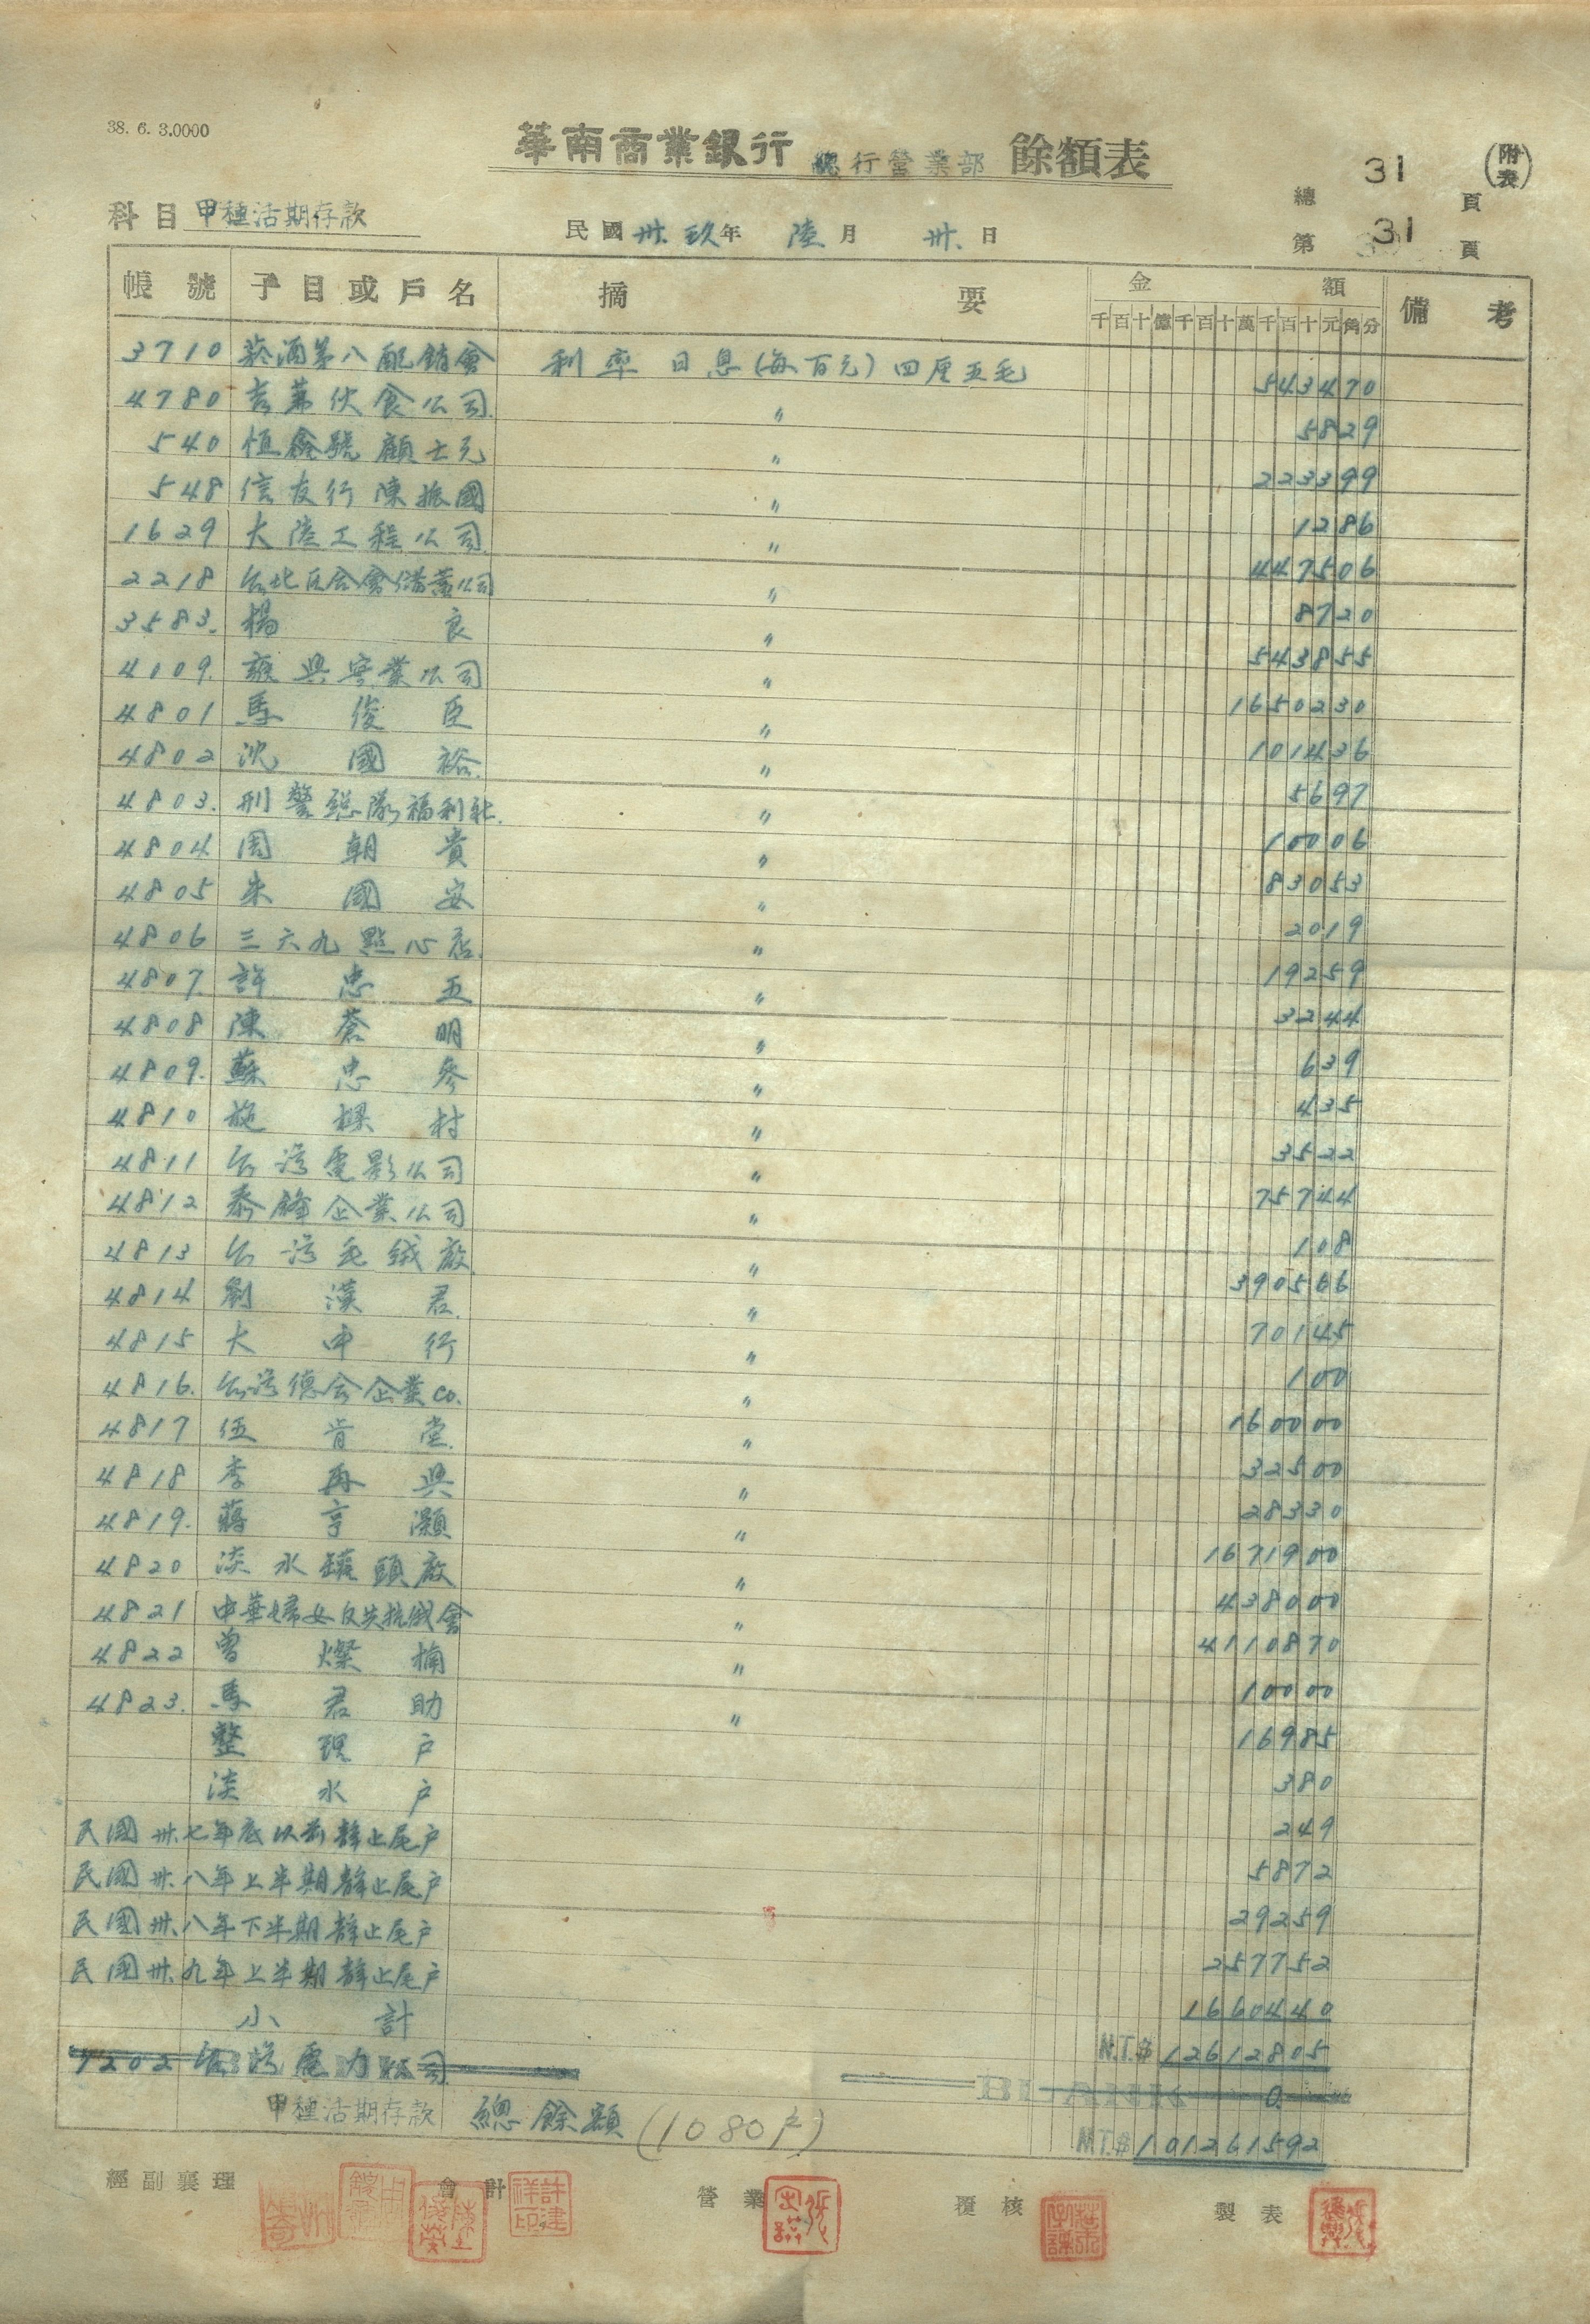 38. 6. 3.0000
華南商業銀行 總行營業部 餘額表
(附表)
總 31 頁
第 31 頁
科目 甲種活期存款
民國 卅玖年 陸月 卅日
帳號 子目或戶名 摘要 金額 備考
千百十億千百十萬千百十元角分
3710 菸酒第八配銷會 利率 日息(每百元)四厘五毛 543470
4780 伙食公司 〃 5829
540 恒鑫號 顧士元 〃 223399
548 信友行 陳振國 〃 1286
1629 大陸工程公司 〃 447506
2218 台北区合會儲蓄公司 〃 8720
3583 楊良 〃 543855
4009 雍興實業公司 〃 1650230
4801 馬俊臣 〃 101436
4802 沈國裕 〃 5697
4803 刑警總隊福利社 〃 10006
4804 周朝貴 〃 83053
4805 朱國安 〃 2019
4806 三六九點心店 〃 19259
4807 許忠五 〃 3244
4808 陳蒼明 〃 639
4809 蘇忠參 〃 435
4810 施樑村 〃 3522
4811 台湾電影公司 〃 75744
4812 泰鋒企業公司 〃 108
4813 台湾毛絨廠 〃 390566
4814 劉漢君 〃 70145
4815 大中行 〃 100
4816 台湾德合企業co. 〃 160000
4817 伍肯堂 〃 32500
4818 李再興 〃 28330
4819 蔣亨灝 〃 1671900
4820 淡水罐頭廠 〃 438000
4821 中華婦女反共抗俄會 〃 4110870
4822 曾燦楠 〃 10000
4823 馬君助 〃 16985
整理户 380
淡水户 249
民國卅七年底以前靜止尾户 5872
民國卅八年上半期靜止尾户 29259
民國卅八年下半期靜止尾户 257752
民國卅九年上半期靜止尾户 1660440
小計 N.T.$ 12612805
7202 台湾電力公司 0
甲種活期存款 總餘額 (1080户) N.T.$ 101261592
經副襄理 會計 營業 覆核 製表